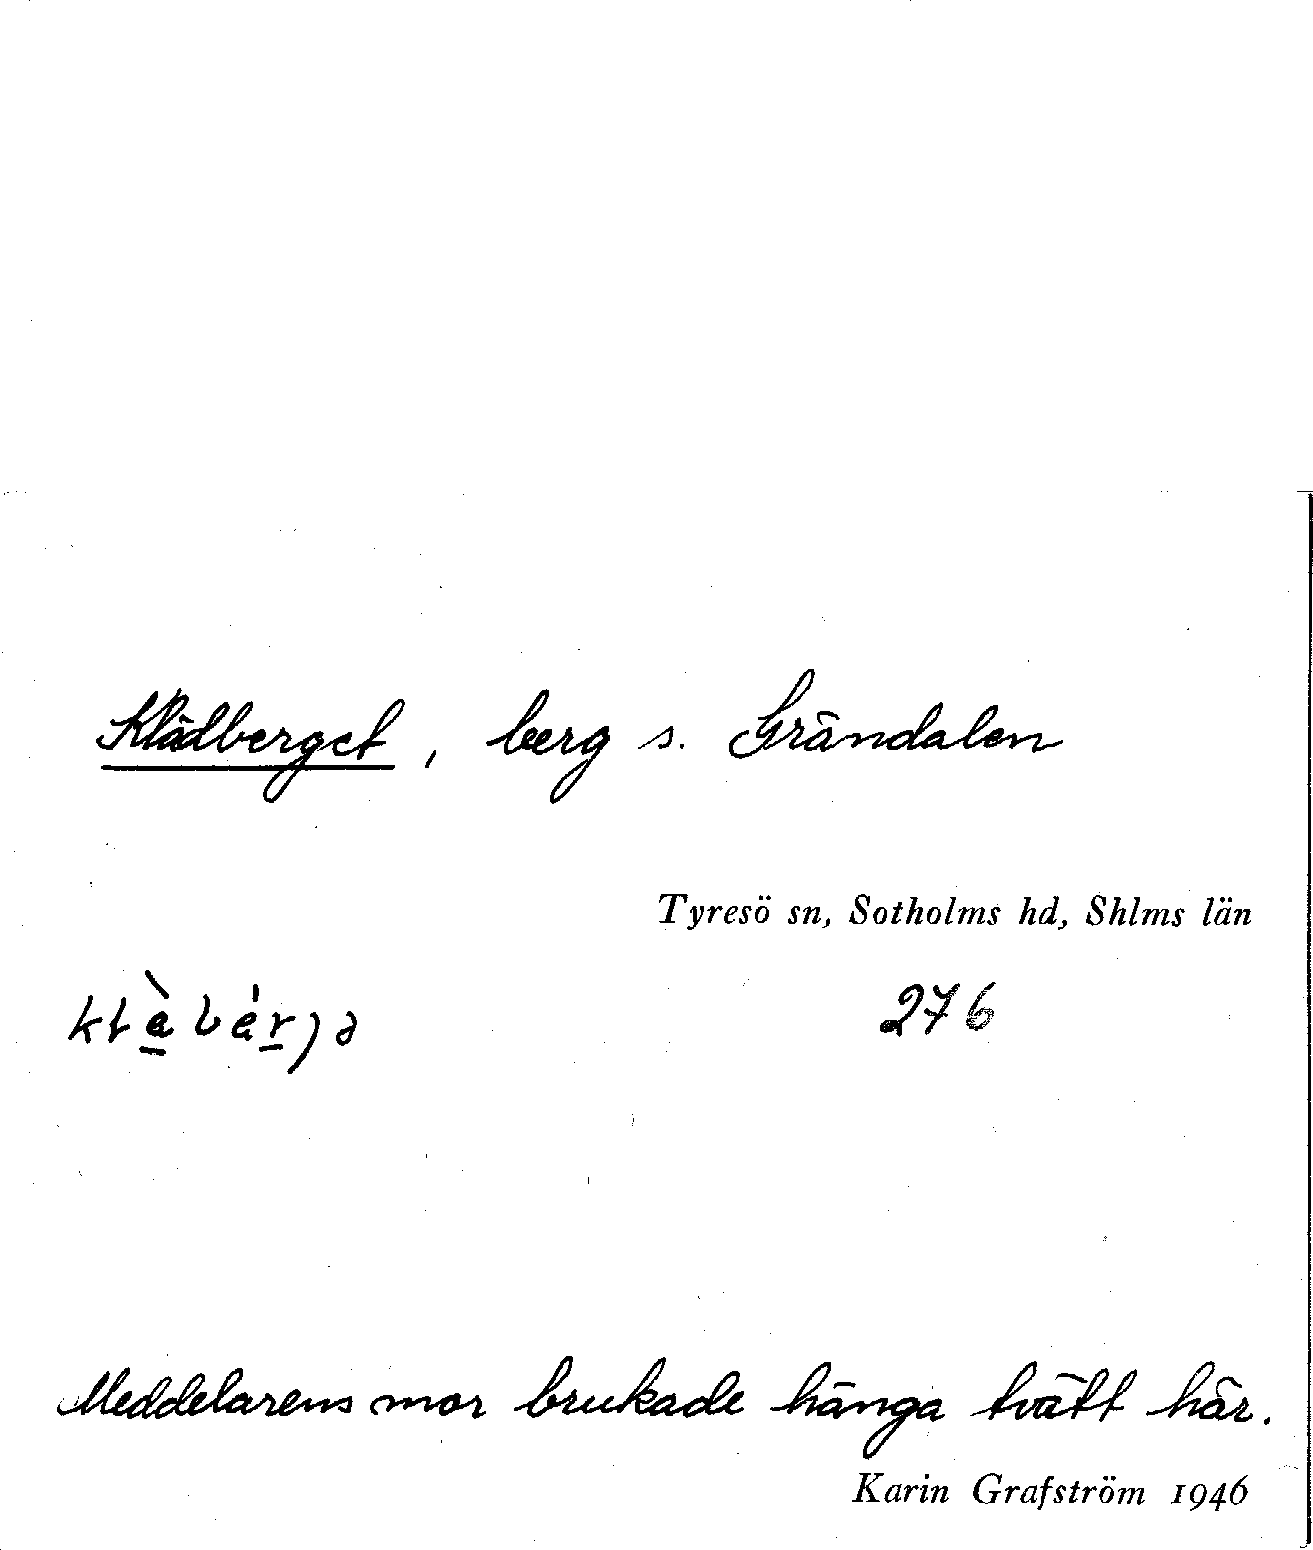 Klädberget, berg s. Grändalen
Tyresö sn, Sotholms hd, Shlms län
276
Meddelarens mor brukade hänga tvätt här.
Karin Grafström 1946